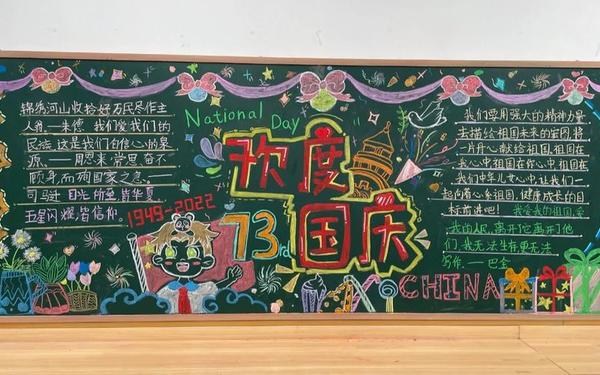 锦绣河山收拾好万民尽作主
人翁.—朱德. 我们爱我们的
民族.这是我们自信心的泉
源.—周恩来.常思奋不
顾身.而殉国家之急.—
司马迁 目光所至 皆华夏
五星闪耀.皆信仰.
1949-2022
National Day
欢度
国庆
73rd
CHINA
我们要用强大的精神力量
去描绘祖国未来的宏图.将
一片丹心献给祖国.祖国在
我心中.祖国在你心中.祖国在
我们中华儿女心中.让我们一
起向着心系祖国.健康成长的目
标前进吧! 我爱我的祖国.爱
我的人民.离开它.离开他
们.我无法生存.更无法
写作.—巴金